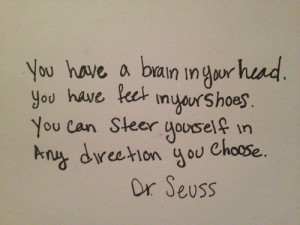 You have a brain in your head.
You have feet in your shoes.
You can steer yourself in
Any direction you choose.
Dr. Seuss